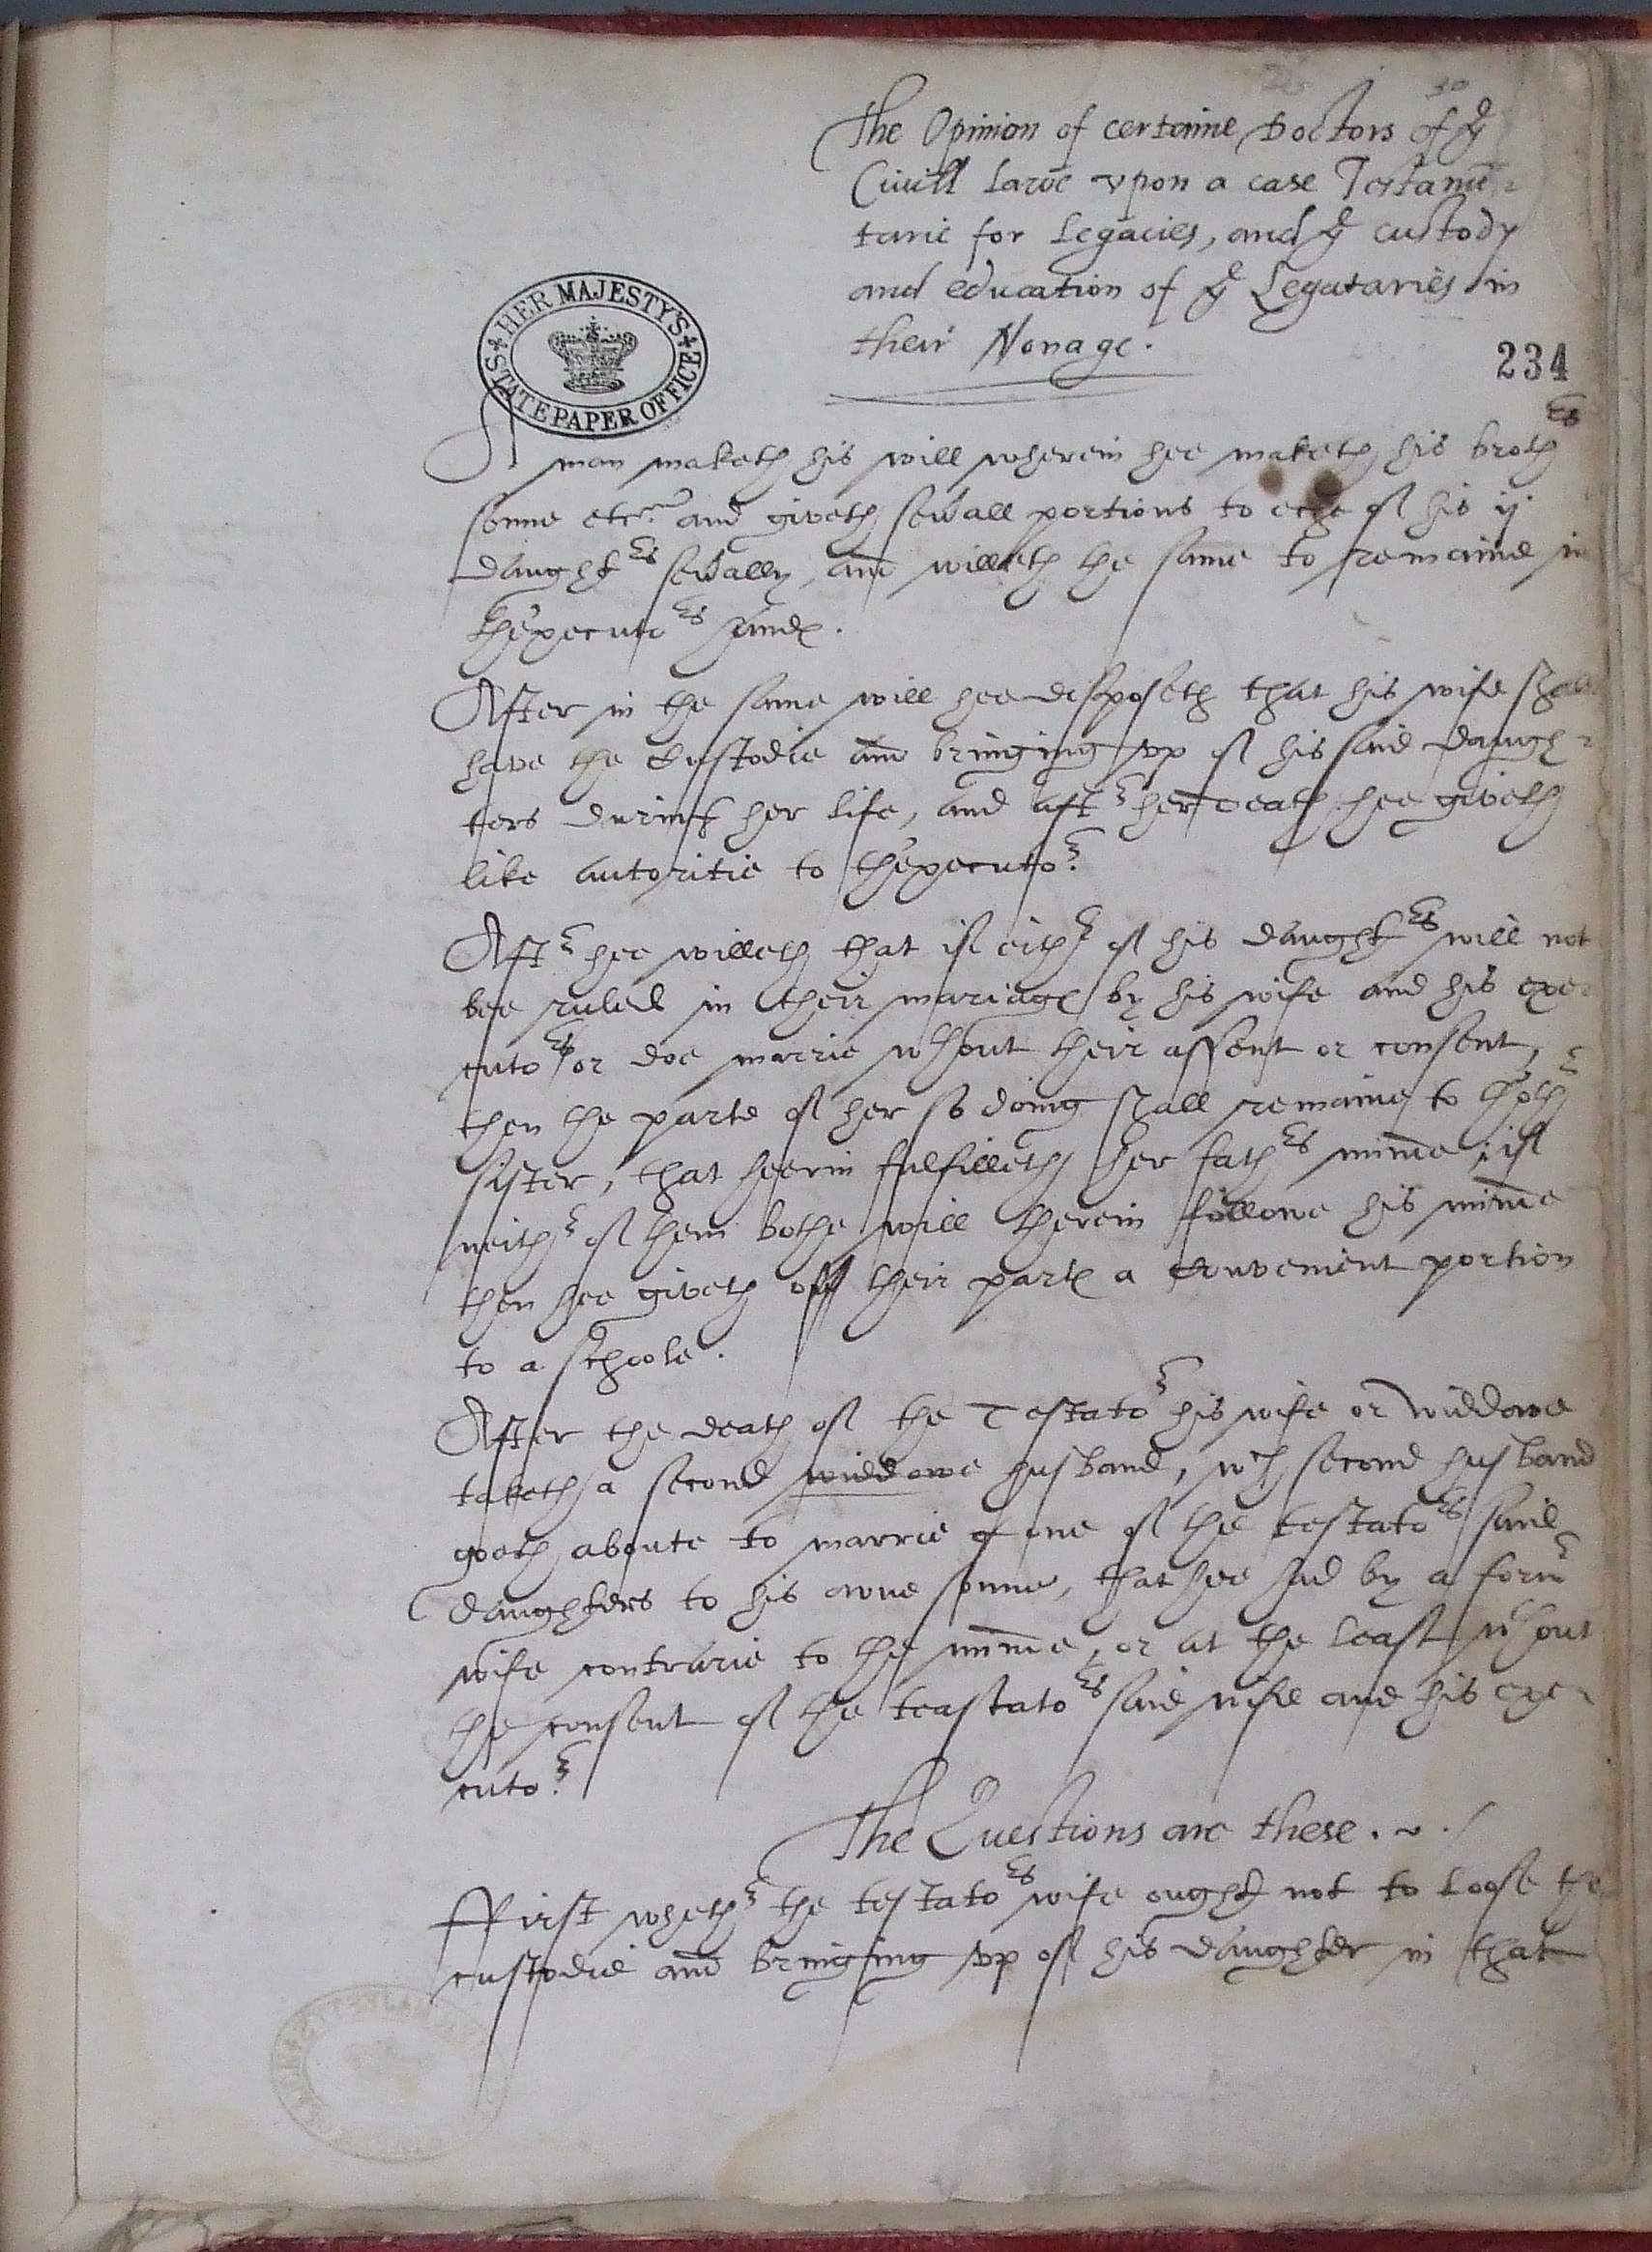 30
The Opinion of certaine Doctors of yͤ
Civill Lawe vpon a case Testamē
tarie for Legacies, and yͤ custody
and education of yͤ Legataries in
their Nonage.
234
HER MAJESTY'S
STATE PAPER OFFICE
A man maketh his will wherein hee maketh his brothers
sonne etc. and giveth sevall portions to eche of his ij
daughters sevally, and willeth the same to remaine in
th'executors handes.
After in the same will hee disposeth that his wife shall
have the custodie and bringing vp of his said daugh
ters during her life, and after her death hee giveth
like autoritie to th'executor.
After hee willeth that if either of his daughters will not
bee ruled in their mariages by his wife and his exe
cutors or doe marrie wthout their assent or consent,
then the parte of her so doing shall remaine to th'other
sister, that heerin fulfilleth her fathers minde; if
neither of them bothe will therein followe his minde
then hee giveth off their partes a convenient portion
to a schoole.
After the death of the Testator his wife or widdowe
taketh a second widdowe husband, wch second husband
goeth aboute to marrie one of the testators said
daughters to his owne sonne, that hee had by a former
wife contrarie to the minde, or at the least wthout
the consent of the teastators said wife and his exe
cutor.
The Questions are these.
ffirst whether the testators wife ought not to loose the
custodie and bringing vp of his daughter in that